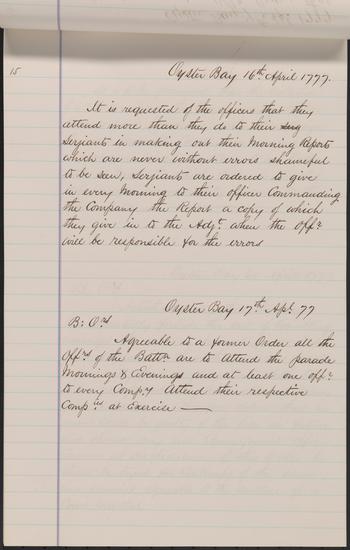 15
Oyster Bay 16th April 1777.
It is requested of the officers that they
attend more than they do to their
Serjiants in making out their Morning Reports
which are never without errors shameful
to be seen, Serjiants are ordered to give
in every Morning to their officer Commanding
the Company the Report a copy of which
they give in to the Adjt. when the Offr.
will be responsible for the errors
Oyster Bay 17th. Apl. 77
B: Ors.
Agreeable to a former Order all the
Offrs. of the Battn. are to attend the parade
Mornings & Evenings and at least one Offr.
to every Compy. Attend their respective
Companies at Exercise —